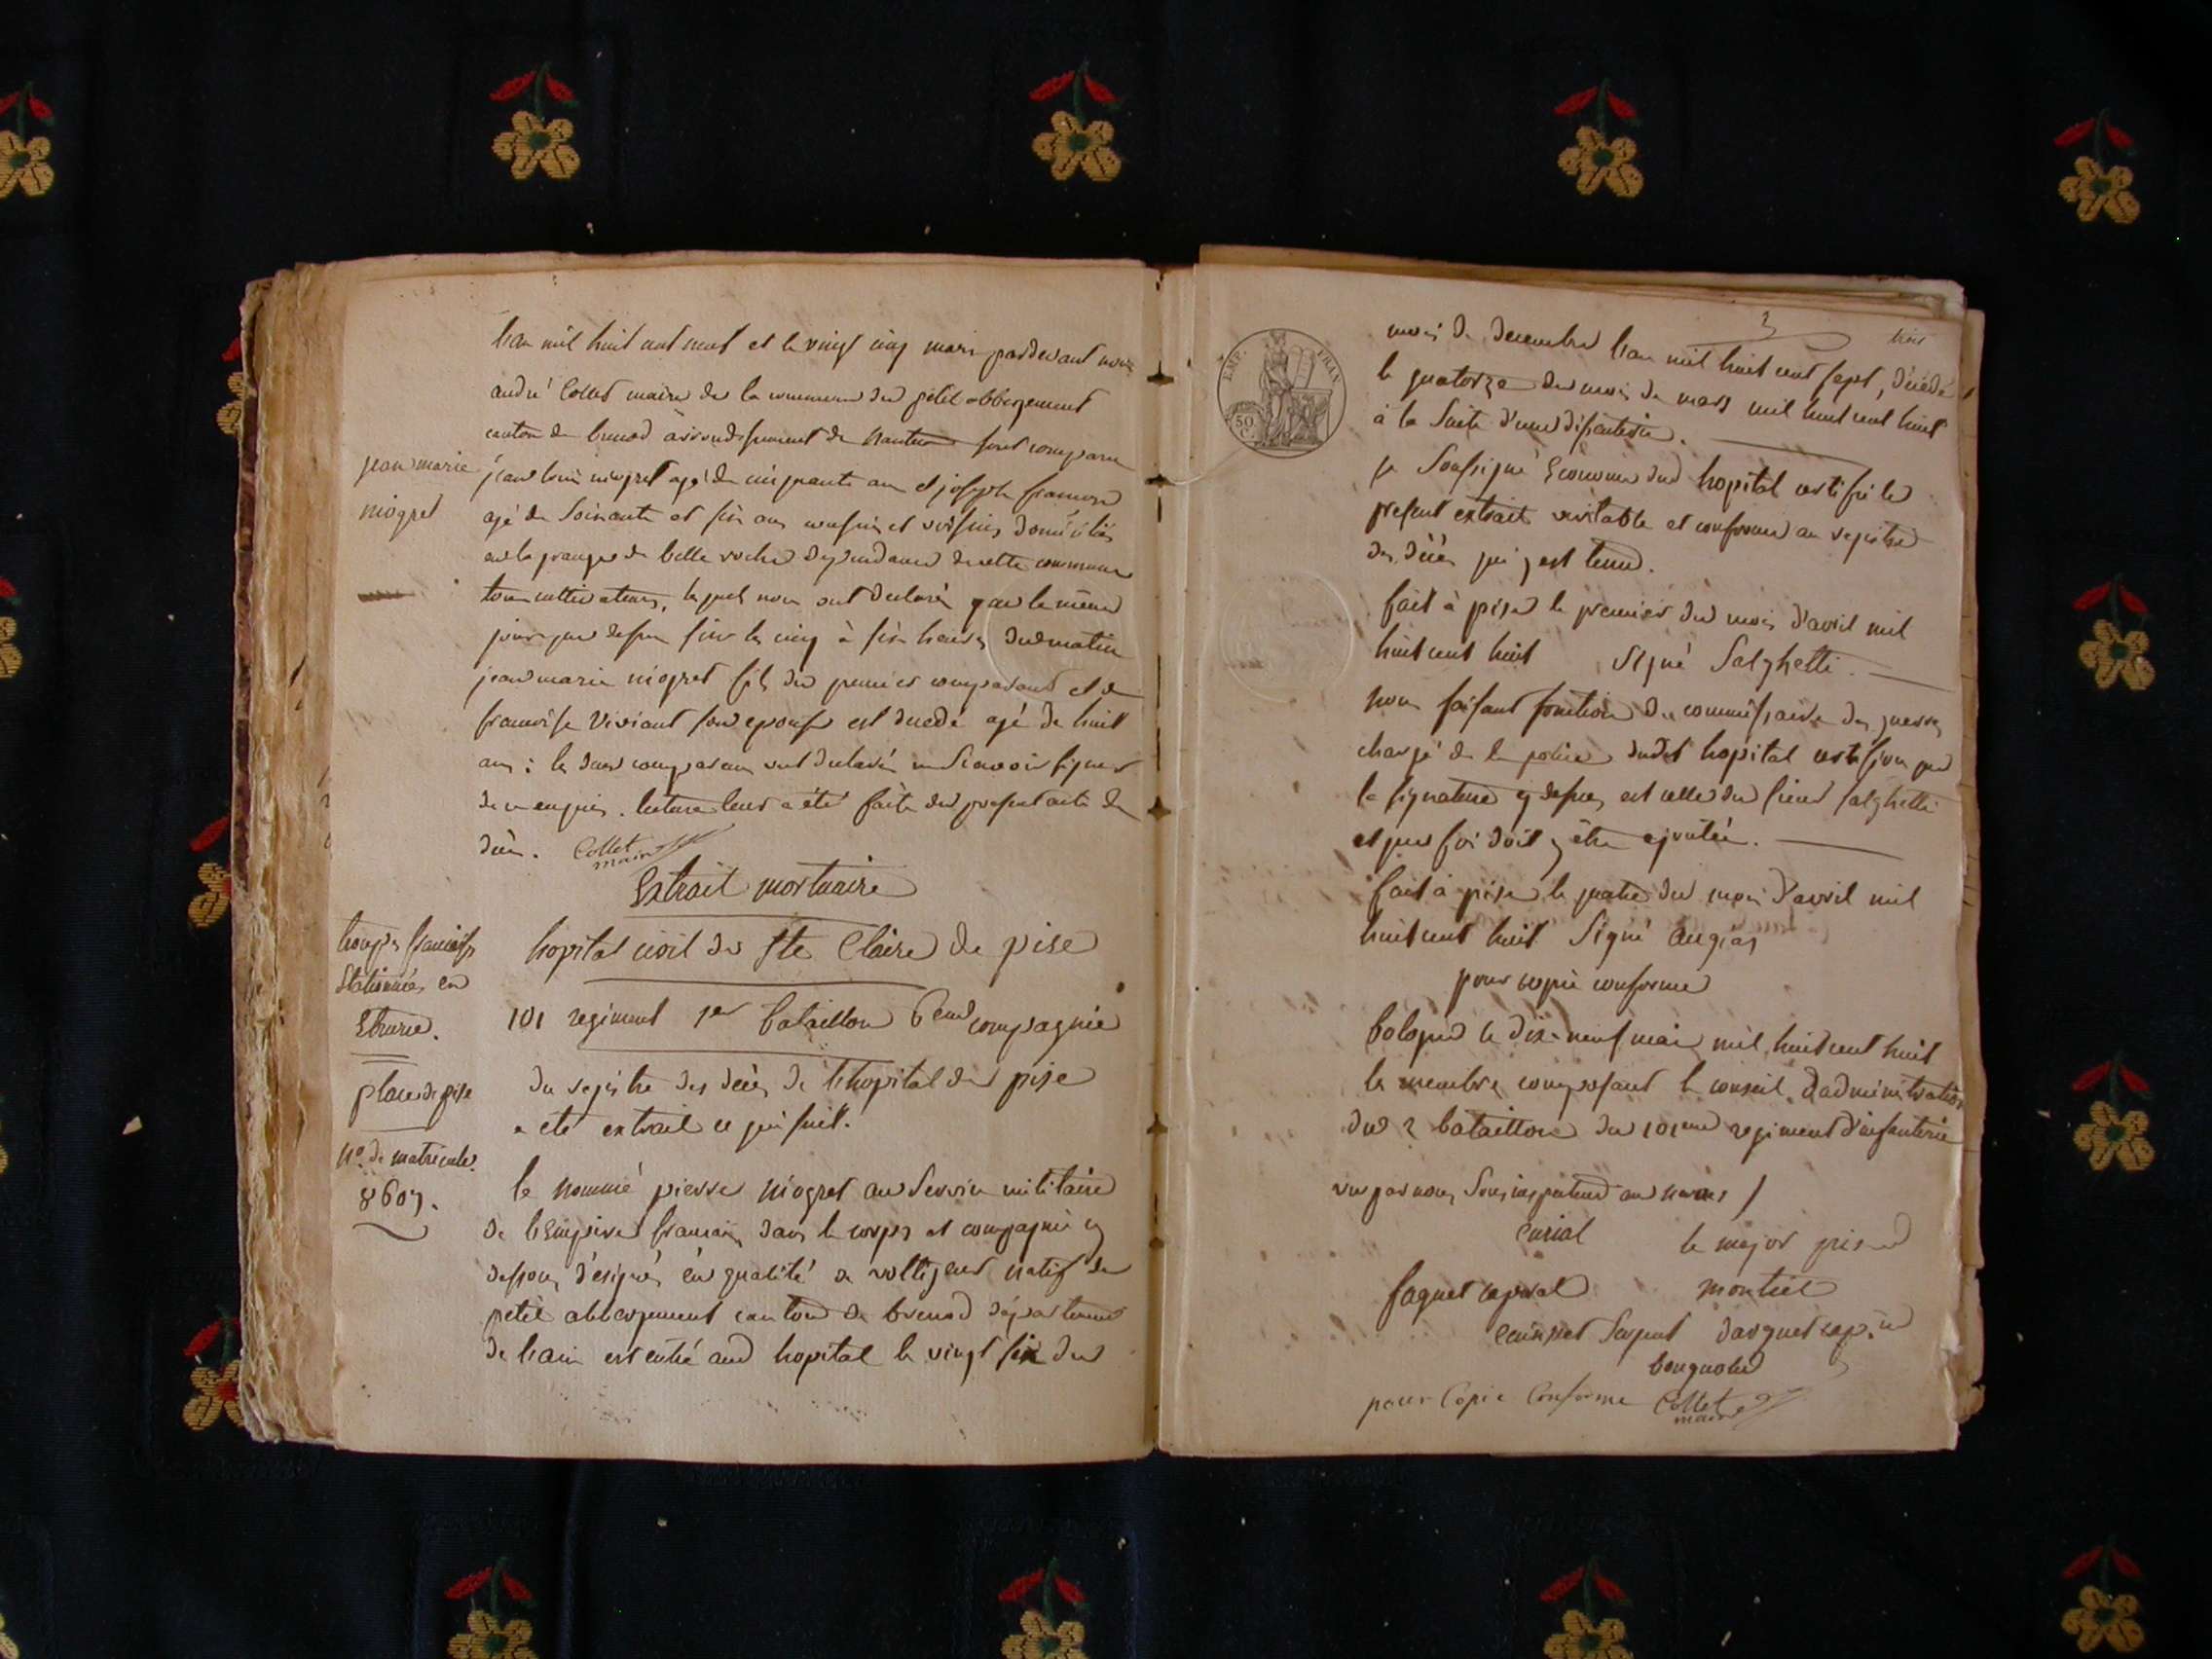 l'an mil huit cent neuf et le vingt cinq mars pardevant nous
andré Collet maire de la commune du petit abbergement
canton de brenod arrondissement de nantua sont comparu
jean marie
niogret
jean louis niogret agé de cinquante ans et joseph
agé de soixante et six ans cousin et voisins domiciliés
en la grange de belle roche dependance de cette commune
tous cultivateurs, lesquels nous ont declaré que le même
jour que dessus sur les cinq à six heures du matin
jean marie niogret fils du premier comparant et de
francoise Viviant son epouse est decedé agé de huit
ans : les deux comparans ont declaré ne scavoir signer
de ce enquis. lecture leur a été faite du present acte de
décès. Collet
maire
Extrait mortuaire
troupes francaises
stationnées en
Etrurie.
place de pise
No. de matricule
8607.
hopital civil de Ste Claire de pise
101 regiment 1er bataillon 6eme compagnie
du registre des décès de l'hopital de pise
a eté extrait ce qui suit.
le nommé pierre niogret au service militaire
de l'Empire francais dans le corps et compagnie cy
dessous désignés en qualité de voltigeur natif de
petit abbergement canton de brenod département
de l'ain est entré aud hopital le vingt six du
3
trois
EMP. FRAN
50 C.
mois de decembre l'an mil huit cent sept, décédé
le quatorze du mois de mars mil huit cent huit
à la suite d'une disenterie.
je soussigné Econome dud hopital certifie le
present extrait veritable et conforme au registre
des décès qui y est tenu.
fait à pise le premier du mois d'avril mil
huit cent huit signé Salghetti.
nous faisant fonction de commissaire des guerres
chargé de la police dudit hopital certifions que
la signature cy dessus est celle du sieur salghetti
et que foi doit y être ajoutée.
fait à pise le quatre du mois d'avril mil
huit cent huit signé augias
pour copie conforme
bologne le dix-neuf mai mil huit cent huit
les membres composant le conseil d'administration
du 2 bataillon du 101eme regiment d'infanterie
vu par nous sous inspecteur aux revues
curial le major
faguet caporal montiel
sergent darguet cap.ne
pour Copie Conforme Collet
maire